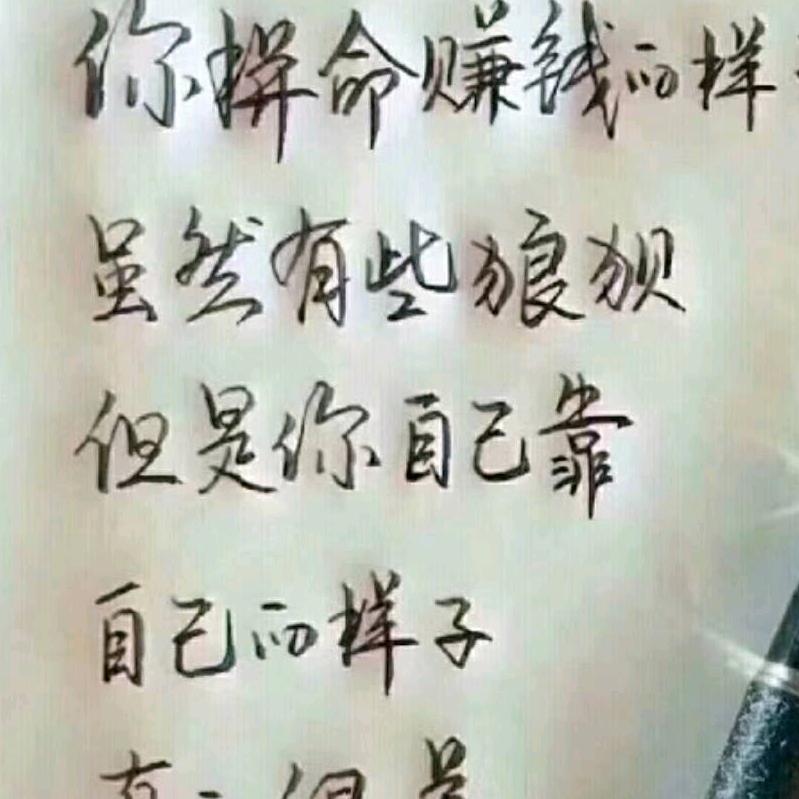 你拼命赚钱的样
虽然有些狼狈
但是你自己靠
自己的样子
真